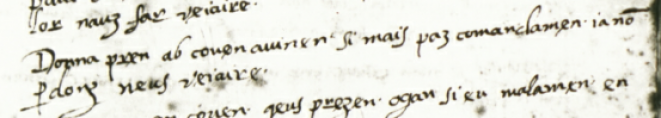 lor nauz far veiaire.
Donna pren ab covenauinen. Si mais paz comandamen. ia nō
ꝑdonz neus veiaire.
coven. qeus prezen. ogan si eu malamen. en